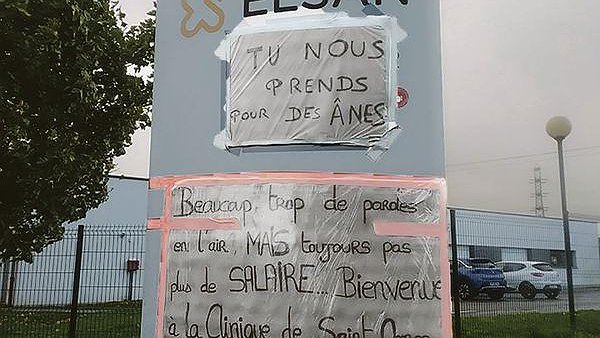 ELSAN
TU NOUS
PRENDS
POUR DES ÂNES
Beaucoup trop de paroles
en l'air, MAIS toujours pas
plus de SALAIRE... Bienvenue
à la Clinique de Saint